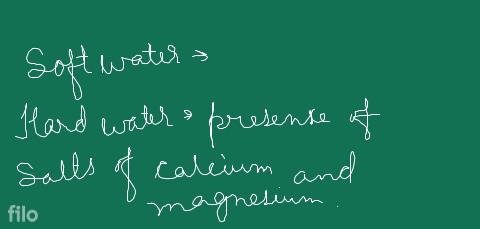 Soft water →
Hard water → presense of
Salts of calcium and
magnesium.
filo